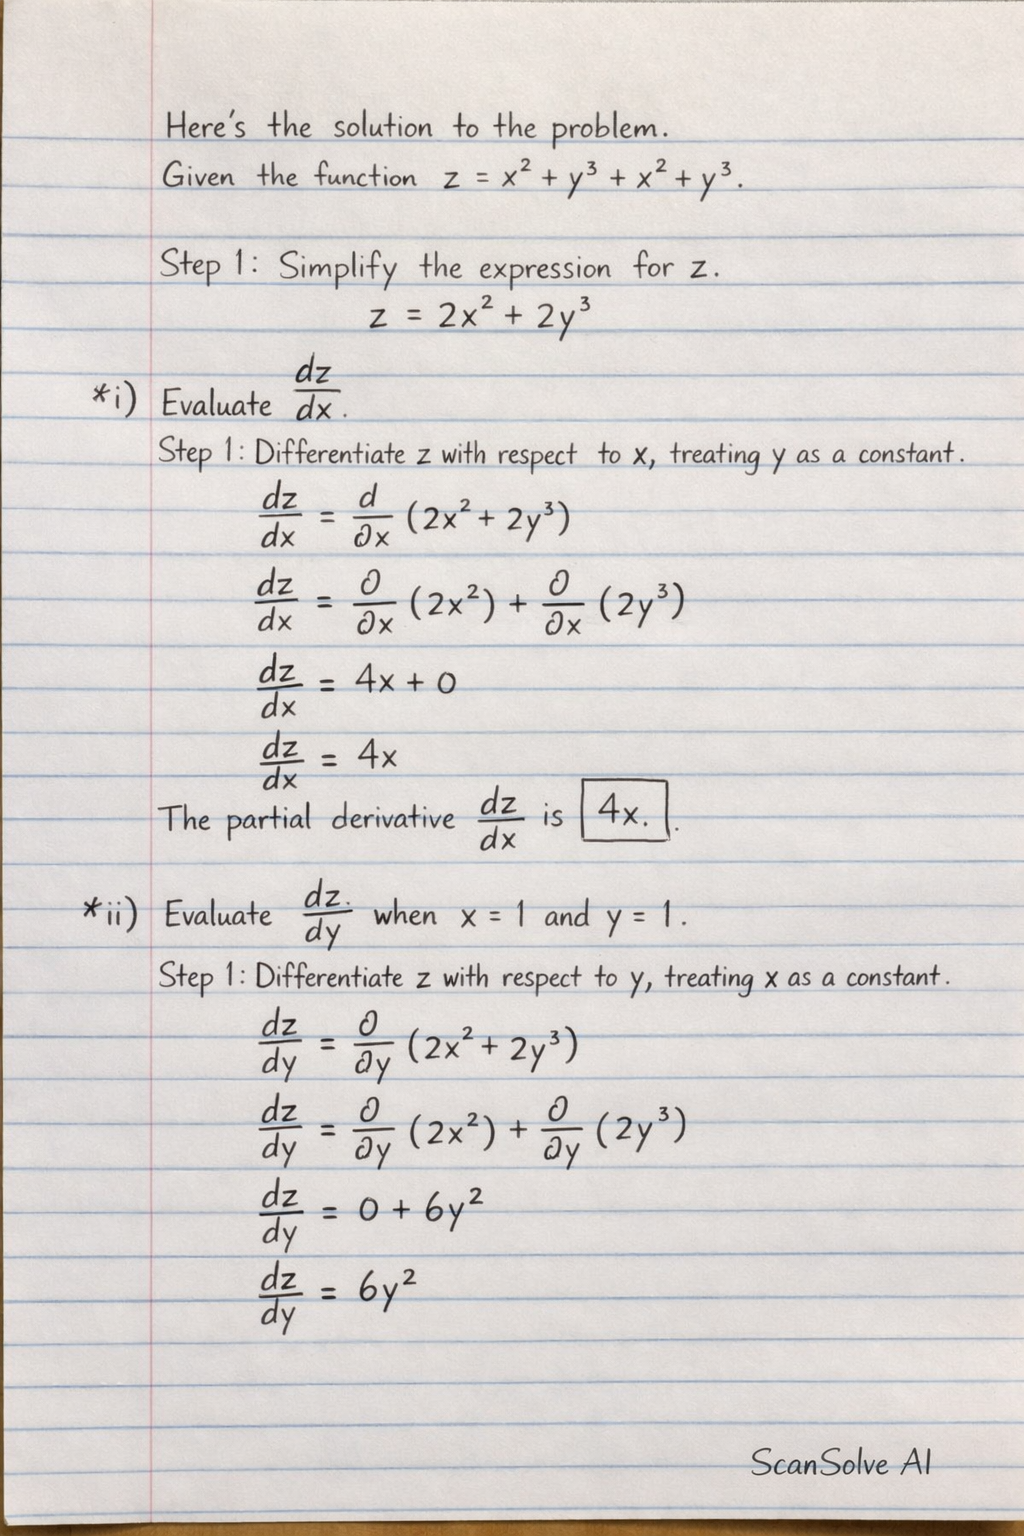 Here's the solution to the problem.
Given the function z = x² + y³ + x² + y³.
Step 1: Simplify the expression for z.
z = 2x² + 2y³
*i) Evaluate dz/dx.
Step 1: Differentiate z with respect to x, treating y as a constant.
dz/dx = d/∂x (2x² + 2y³)
dz/dx = ∂/∂x (2x²) + ∂/∂x (2y³)
dz/dx = 4x + 0
dz/dx = 4x
The partial derivative dz/dx is 4x. .
*ii) Evaluate dz./dy when x = 1 and y = 1.
Step 1: Differentiate z with respect to y, treating x as a constant.
dz/dy = ∂/∂y (2x² + 2y³)
dz/dy = ∂/∂y (2x²) + ∂/∂y (2y³)
dz/dy = 0 + 6y²
dz/dy = 6y²
ScanSolve AI